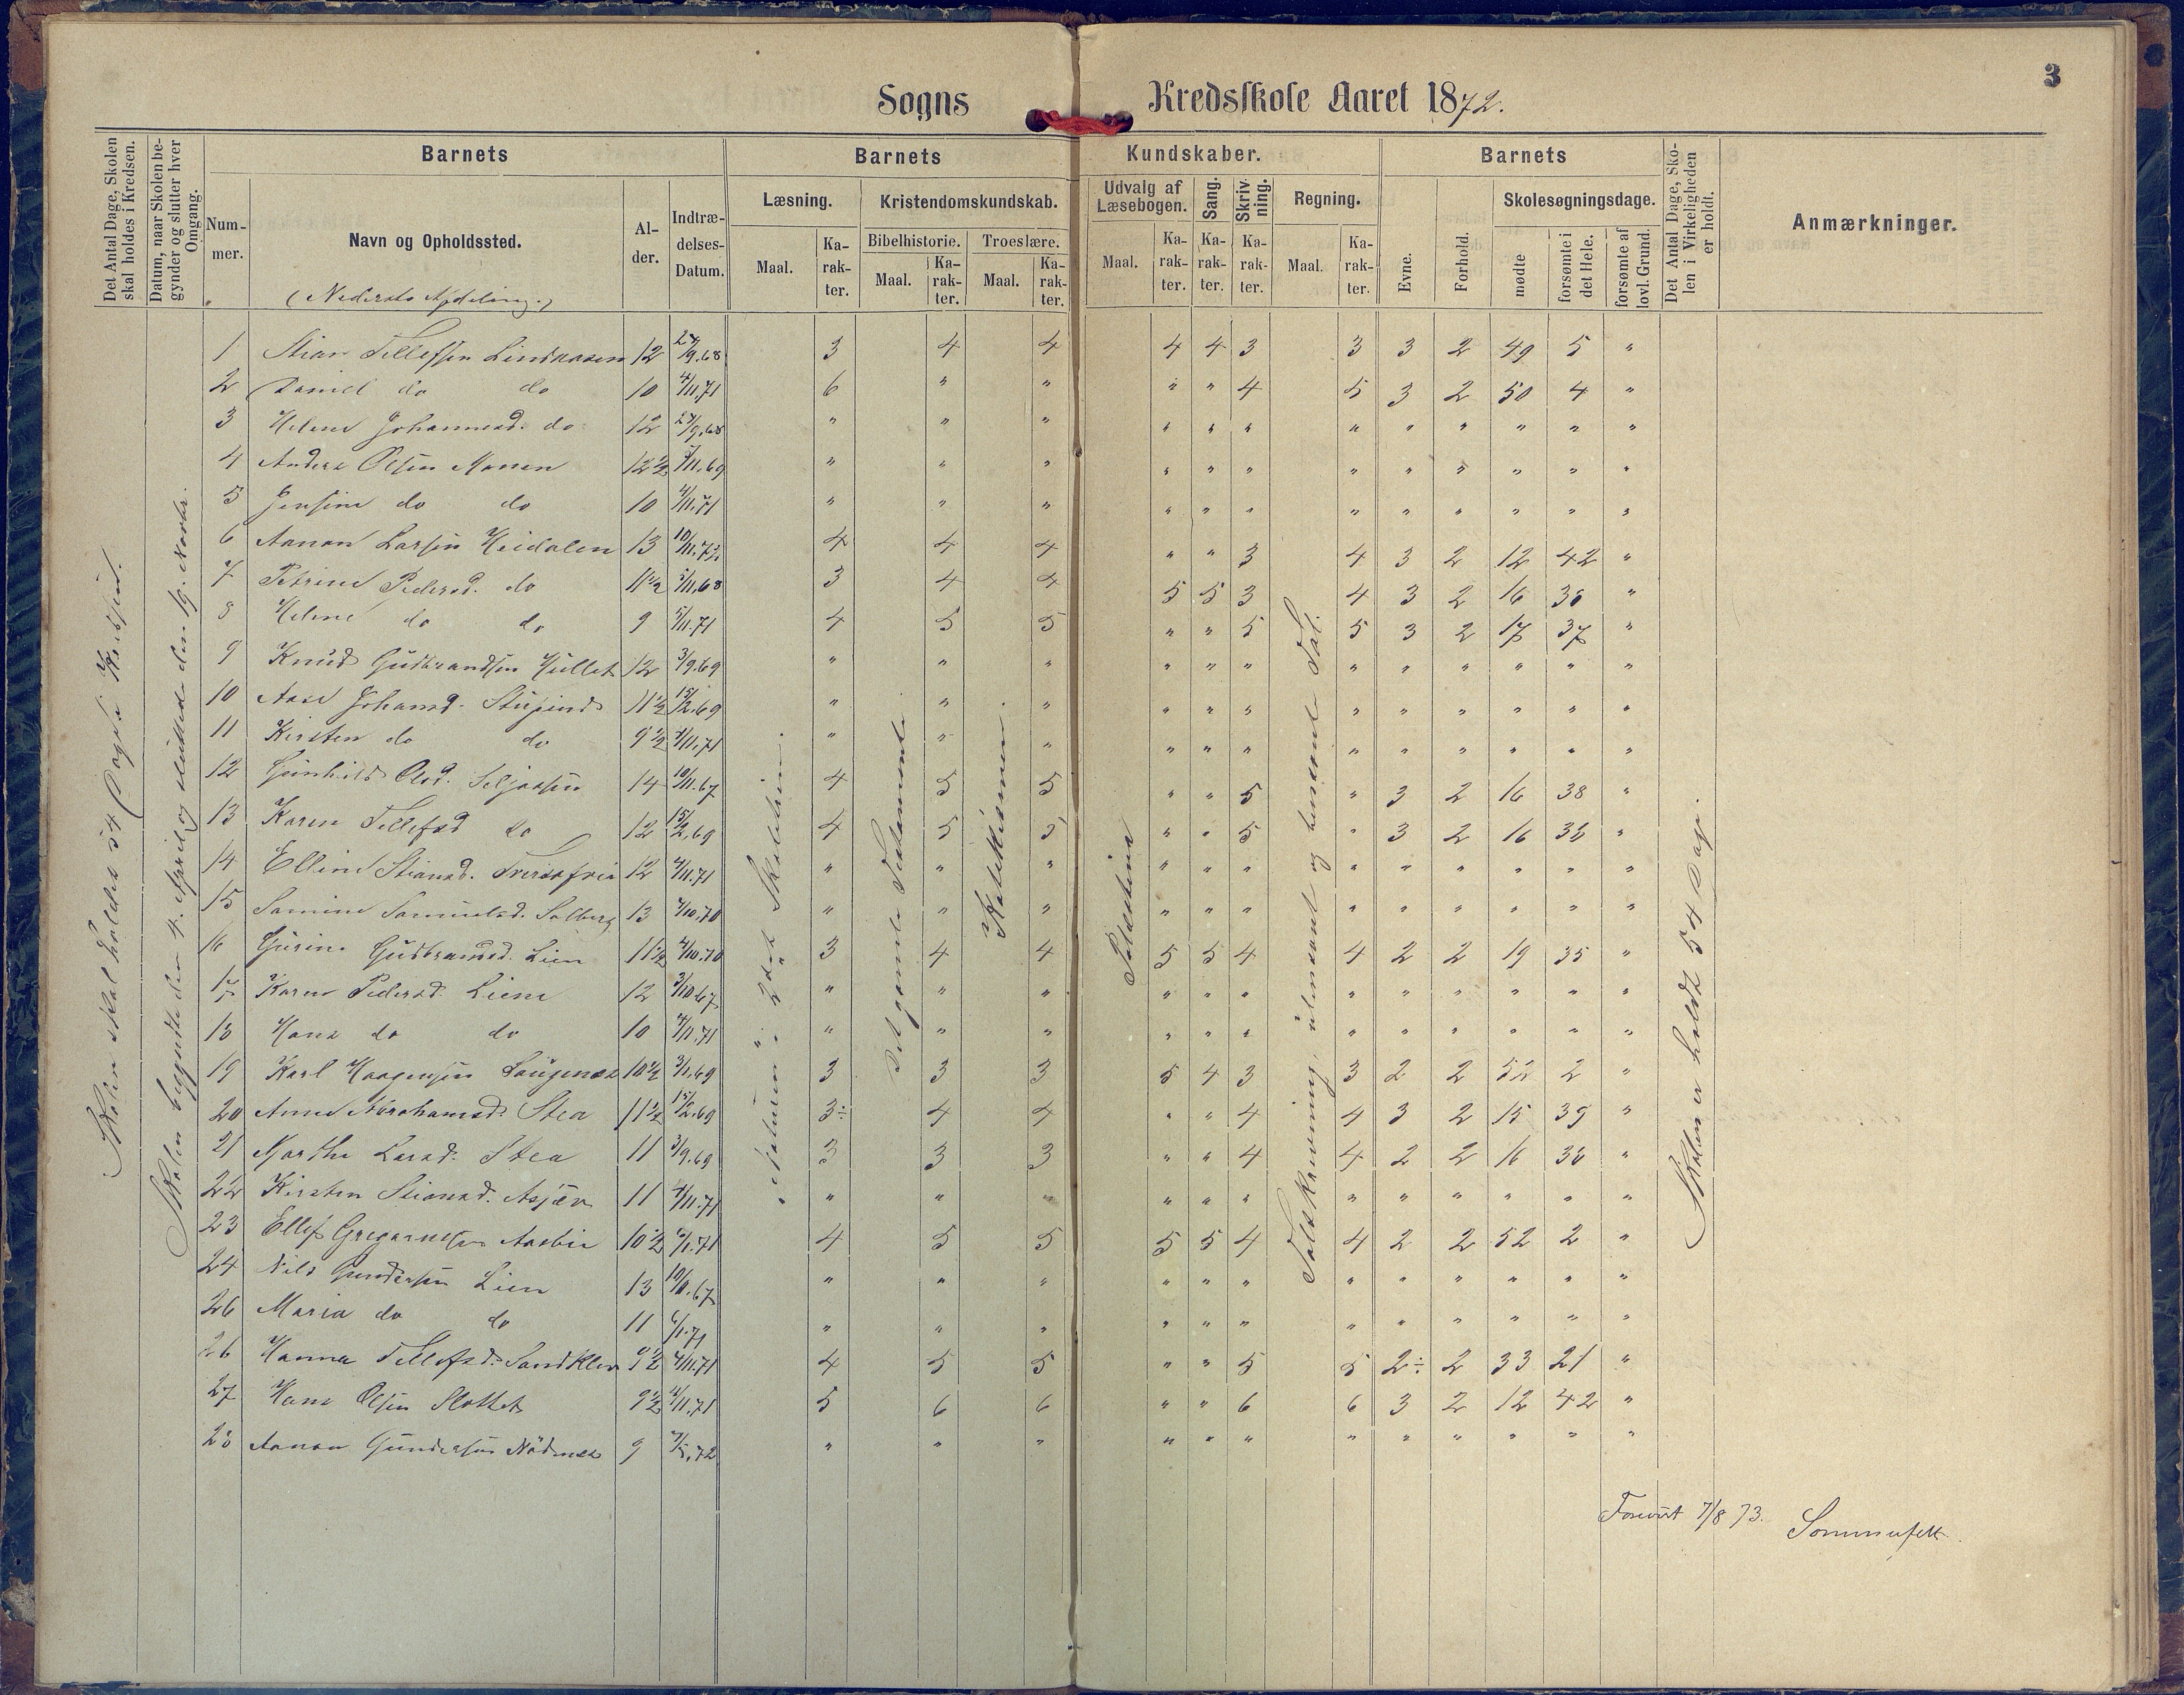 3
Sogns Kredsskole Aaret 1872.
Det Antal Dage, Skolen skal holdes i Kredsen.
Datum, naar Skolen begynder og slutter hver Omgang.
Barnets
Nummer.
Navn og Opholdssted.
(Nederste Afdeling.)
Alder.
Indtrædelses-Datum.
Barnets Kundskaber.
Læsning.
Maal.
Karakter.
Kristendomskundskab.
Bibelhistorie.
Maal.
Karakter.
Troeslære.
Maal.
Karakter.
Udvalg af Læsebogen.
Maal.
Karakter.
Sang.
Karakter.
Skrivning.
Karakter.
Regning.
Maal.
Karakter.
Barnets
Evne.
Forhold.
Skolesøgningsdage.
mødte
forsømte i det Hele.
forsømte af lovl. Grund.
Det Antal Dage, Skolen i Virkeligheden er holdt.
Anmærkninger.
Skolen skal holdes 54 Dage i Kredsen.
Skolen begyndte den 4. April og sluttede den 19. Novbr.
Det gamle Testamente
Katekismen.
Palæstina
Skolen er holdt 54 Dage.
1 Stian Tellefsen Lindaasen 12 24/9.68 3 4 4 4 4 3 3 3 2 49 5 "
2 Daniel do do 10 4/11.71 6 " " " " 4 5 3 2 50 4 "
3 Helene Johannesd. do 12 24/9.68 " " " " " " " " " " " "
4 Anders Olsen Monen 12½ /11.69 " " " " " " " " " " " "
5 Jensine do do 10 4/11.71 " " " " " " " " " " " "
6 Aanon Larsen Heidalen 13 10/11.72 4 4 4 " " 3 4 3 2 12 42 "
7 Petrine Pedersd. do 11½ /11.68 3 4 4 5 5 3 4 3 2 16 38 "
8 Helene do do 9 5/11.71 4 5 5 " " 5 5 3 2 17 37 "
9 Knud Gudbrandsen Hullet 12 3/9.69 " " " " " " " " " " " "
10 Aase Johansd. 11½ 15/2.69 " " " " " " " " " " " "
11 Kirsten do do 9½ 4/11.71 " " " " " " " " " " " "
12 Gunhild Olsd. Seljaasen 14 10/11.67 4 5 5 " " 5 " 3 2 16 38 "
13 Karen Tellefsd do 12 15/2.69 4 5 5 " " 5 " 3 2 16 38 "
14 Elline Stiansd. 12 4/11.71 " " " " " " " " " " " "
15 Samine Samuelsd. Solberg 13 4/10.70 " " " " " " " " " " " "
16 Gurine Gudbrandsd. Lien 11½ 4/10.70 3 4 4 5 5 4 4 2 2 19 35 "
17 Karen Pedersd. Liene 12 3/10.67 " " " " " " " " " " " "
18 Hans do do 10 4/11.71 " " " " " " " " " " " "
19 Karl Haagensen Laugenæs 10½ 3/1.69 3 3 3 5 4 3 3 2 2 52 2 "
20 Anne Abrahamsd. Stea 11½ 15/2.69 3÷ 4 4 " " 4 4 3 2 15 39 "
21 Marthe Larsd. Stea 11 3/9.69 3 3 3 " " 4 4 2 2 16 38 "
22 Kirsten Stiansd. 11 4/11.71 " " " " " " " " " " " "
23 Ellef Gregersen Aasbie 10½ 6/1.71 4 5 5 5 5 4 4 2 2 52 2 "
24 Nils Gundersen Lien 13 10/11.67 " " " " " " " " " " " "
26 Maria do do 11 6/1.71 " " " " " " " " " " " "
26 Hanna Tellefsd. Sandklev 9½ 4/11.71 4 5 5 " " 5 5 2÷ 2 33 21 "
27 Hans Olsen Slottet 9½ 4/11.71 5 6 6 " " 6 6 3 2 12 42 "
28 Aanon Gundersen 9 72 " " " " " " " " " " " "
Forevist 7/8 73. Sommerfelt